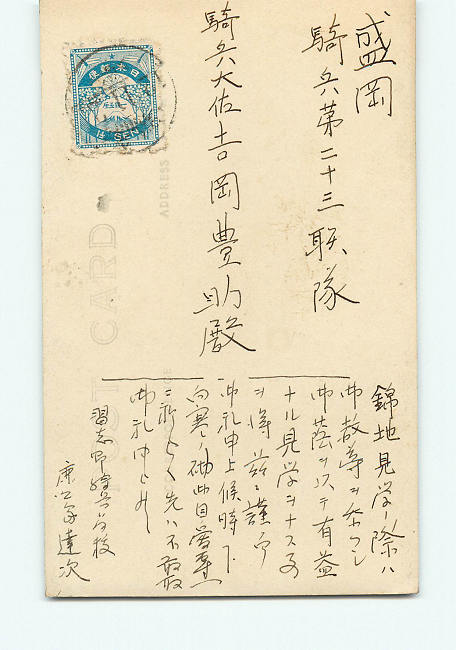 盛岡
騎兵第二十三联隊
騎兵大佐吉岡豊助殿
錦地見学ノ際ハ
御教導ヲ忝フシ
御蔭ヲ以テ有益
ナル見学ヲナス
ヲ得茲ニ謹而
御礼申上候時下
向寒ノ砌 自愛専一
ニ祈上候先ハ不取敢
御礼申上候
習志野騎兵学校
達次
日本郵便
SEN
POST CARD
ADDRESS